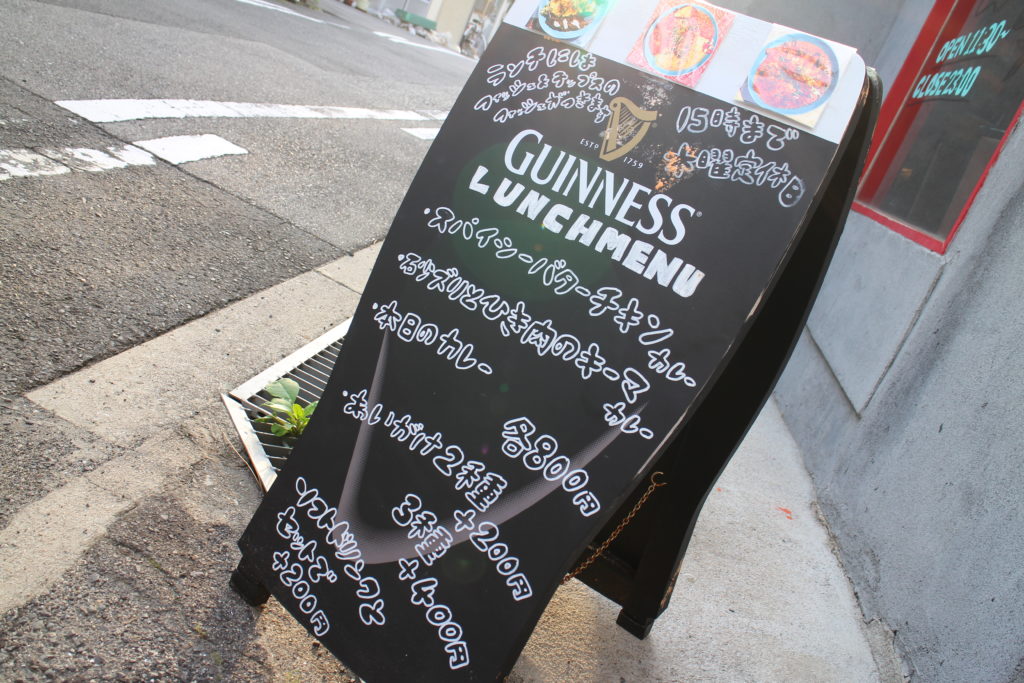 ランチには
フィッシュ&チップスの
フィッシュがつきます
15時まで
水曜定休日
ESTD 1759
GUINNESS
LUNCHMENU
・スパイシーバターチキンカレー
・石少ズリとひき肉のキーマカレー
・本日のカレー
各800円
・あいがけ2種 +200円
3種 +400円
ソフトドリンクと
セットで
+200円
OPEN 11:30~
CLOSE23:00